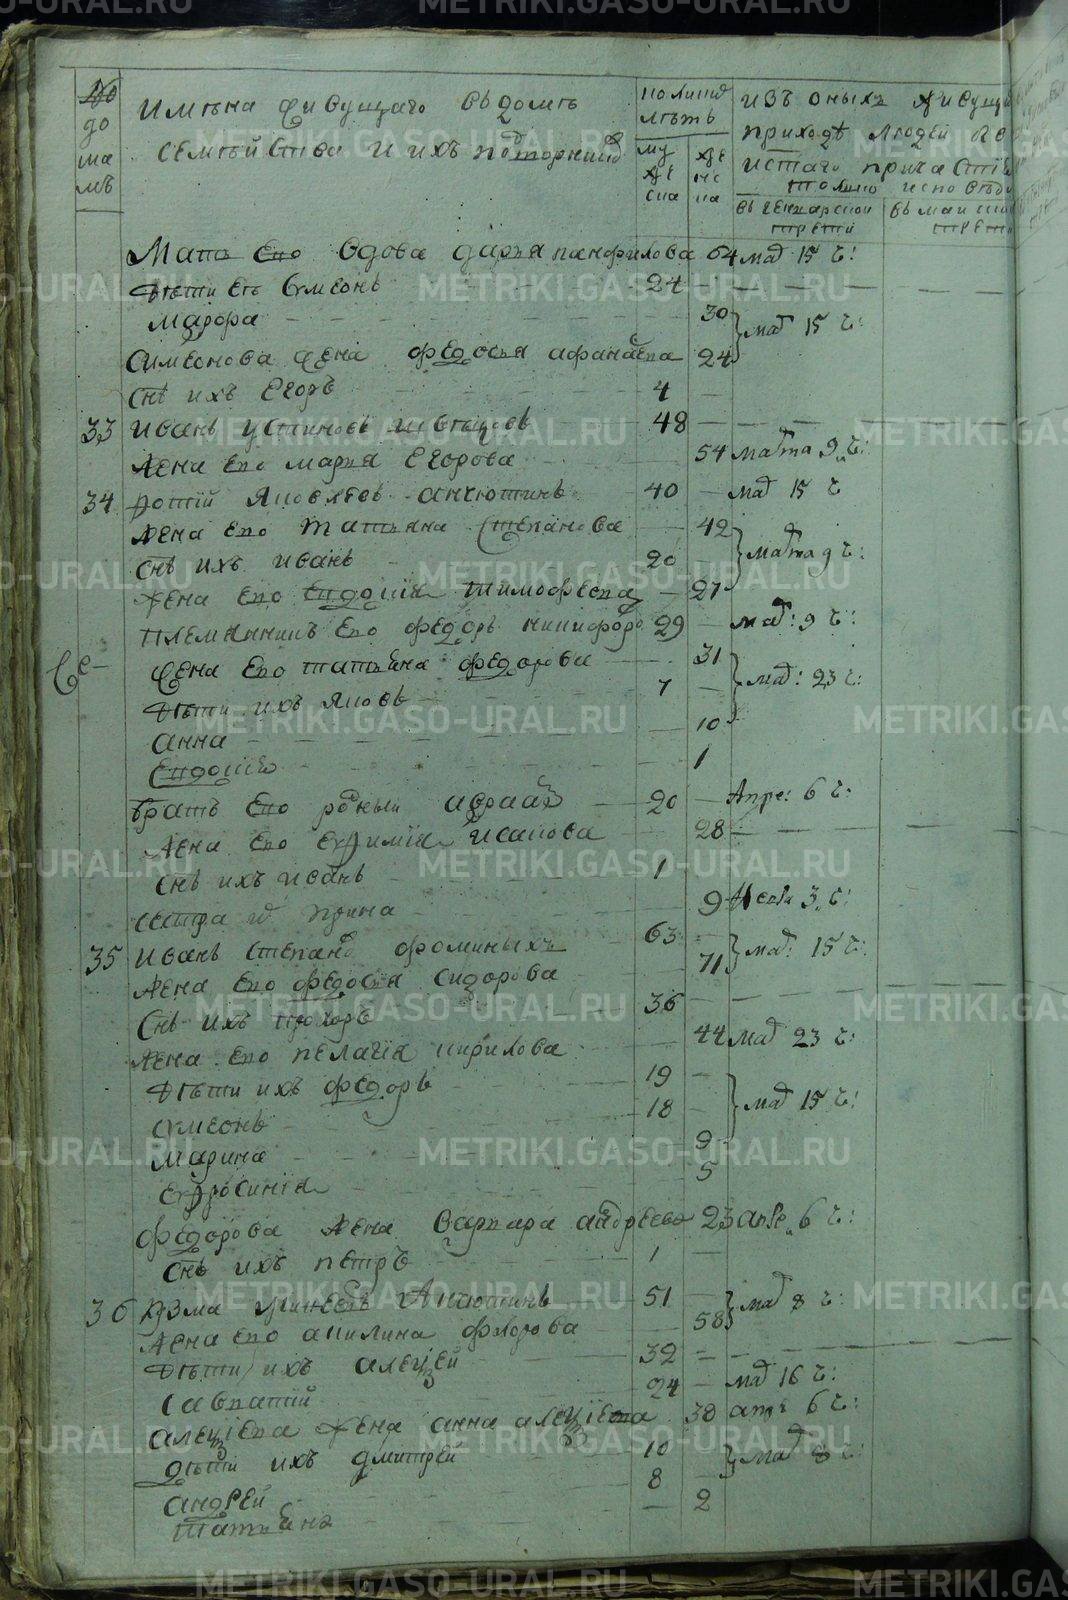 № до ма мъ
имѣна живущаго въ домѣ
семѣйства и ихъ
по лицѣ лѣтъ
му же ска
же нс ка
изъ оныхъ живущи
приходѣ людей
истаго прича
толико исповѣд
въ генварской трети
въ майской трети
Мать его вдова дарья панфилова 64 маѣ 15 ч:
Дѣти еѣ Симеонъ 24
Мавра 30 маѣ 15 ч:
Симеонова жена федосья афанаева 24
Снъ ихъ Егоръ 4
33 Иванъ устиновъ 48
Жена его марья Егорова 54 марта 9 ч:
34 Фотїй Яковлевъ анчютинъ 40 маѣ 15 ч
Жена его татьяна Степанова 42 марта 9 ч:
Снъ ихъ иванъ 20
Жена его Евдокїя тимофеева 27
племянникъ его федоръ никифоро 29 маѣ: 9 ч:
Жена его татьяна федорова 31 маѣ: 23 ч:
Дѣти ихъ Яковъ 7
анна 10
Евдокїя 1
братъ его родный 20 Апре: 6 ч:
Жена его ефимїя Исакова 28
Снъ ихъ иванъ 1
сестра ирина 9 3 ч:
35 Иванъ степанов фоминыхъ 63 маѣ: 15 ч:
Жена его федосья сидорова 71
Снъ ихъ прохоръ 36
Жена его пелагїя кирилова 44 маѣ 23 ч:
Дѣти ихъ федоръ 19 маѣ 15 ч:
Симеонъ 18
Марина 9
Ефросинїя 5
федорова жена варвара андреева 23 апре 6 ч:
Снъ ихъ петръ 1
36 Кузма Анчютинъ 51 маѣ 8 ч:
Жена его акилина федорова 58
Дѣти ихъ алеѯей 32
Савватїй 24 маѣ 16 ч:
алеѯїева жена анна алеѯїева 38 апр 6 ч:
Дѣти ихъ Дмитрей 10 маѣ 8 ч:
андрей 8
татьяна 2
METRIKI.GASO-URAL.RU